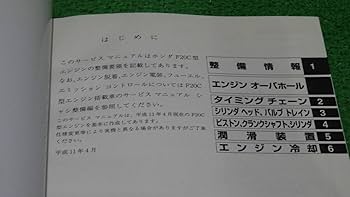 はじめに
このサービス マニュアルはホンダ F20C 型
エンジンの整備要領を記載してあります。
なお、エンジン脱着、エンジン電装、フューエル、
エミッション コントロールについてはF20C
型エンジン搭載車のサービス マニュアル シャ
シ整備編を参照してください。
このサービス マニュアルは、平成11年4月現在のF20C
型エンジンを基本に作成してあります。
仕様変更等により実機と異なる場合がありますがご了承
ください。
平成11年4月
整備情報 1
エンジン オーバホール
タイミング チェーン 2
シリンダ ヘッド、バルブ トレイン 3
ピストン、クランクシャフト、シリンダ 4
潤滑装置 5
エンジン冷却 6